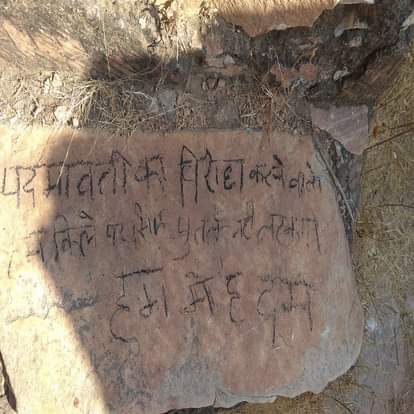 पदमावती का विरोध करने वाले
हम किले पर सिर्फ पुतले नहीं लटकाते
हम मे है दम